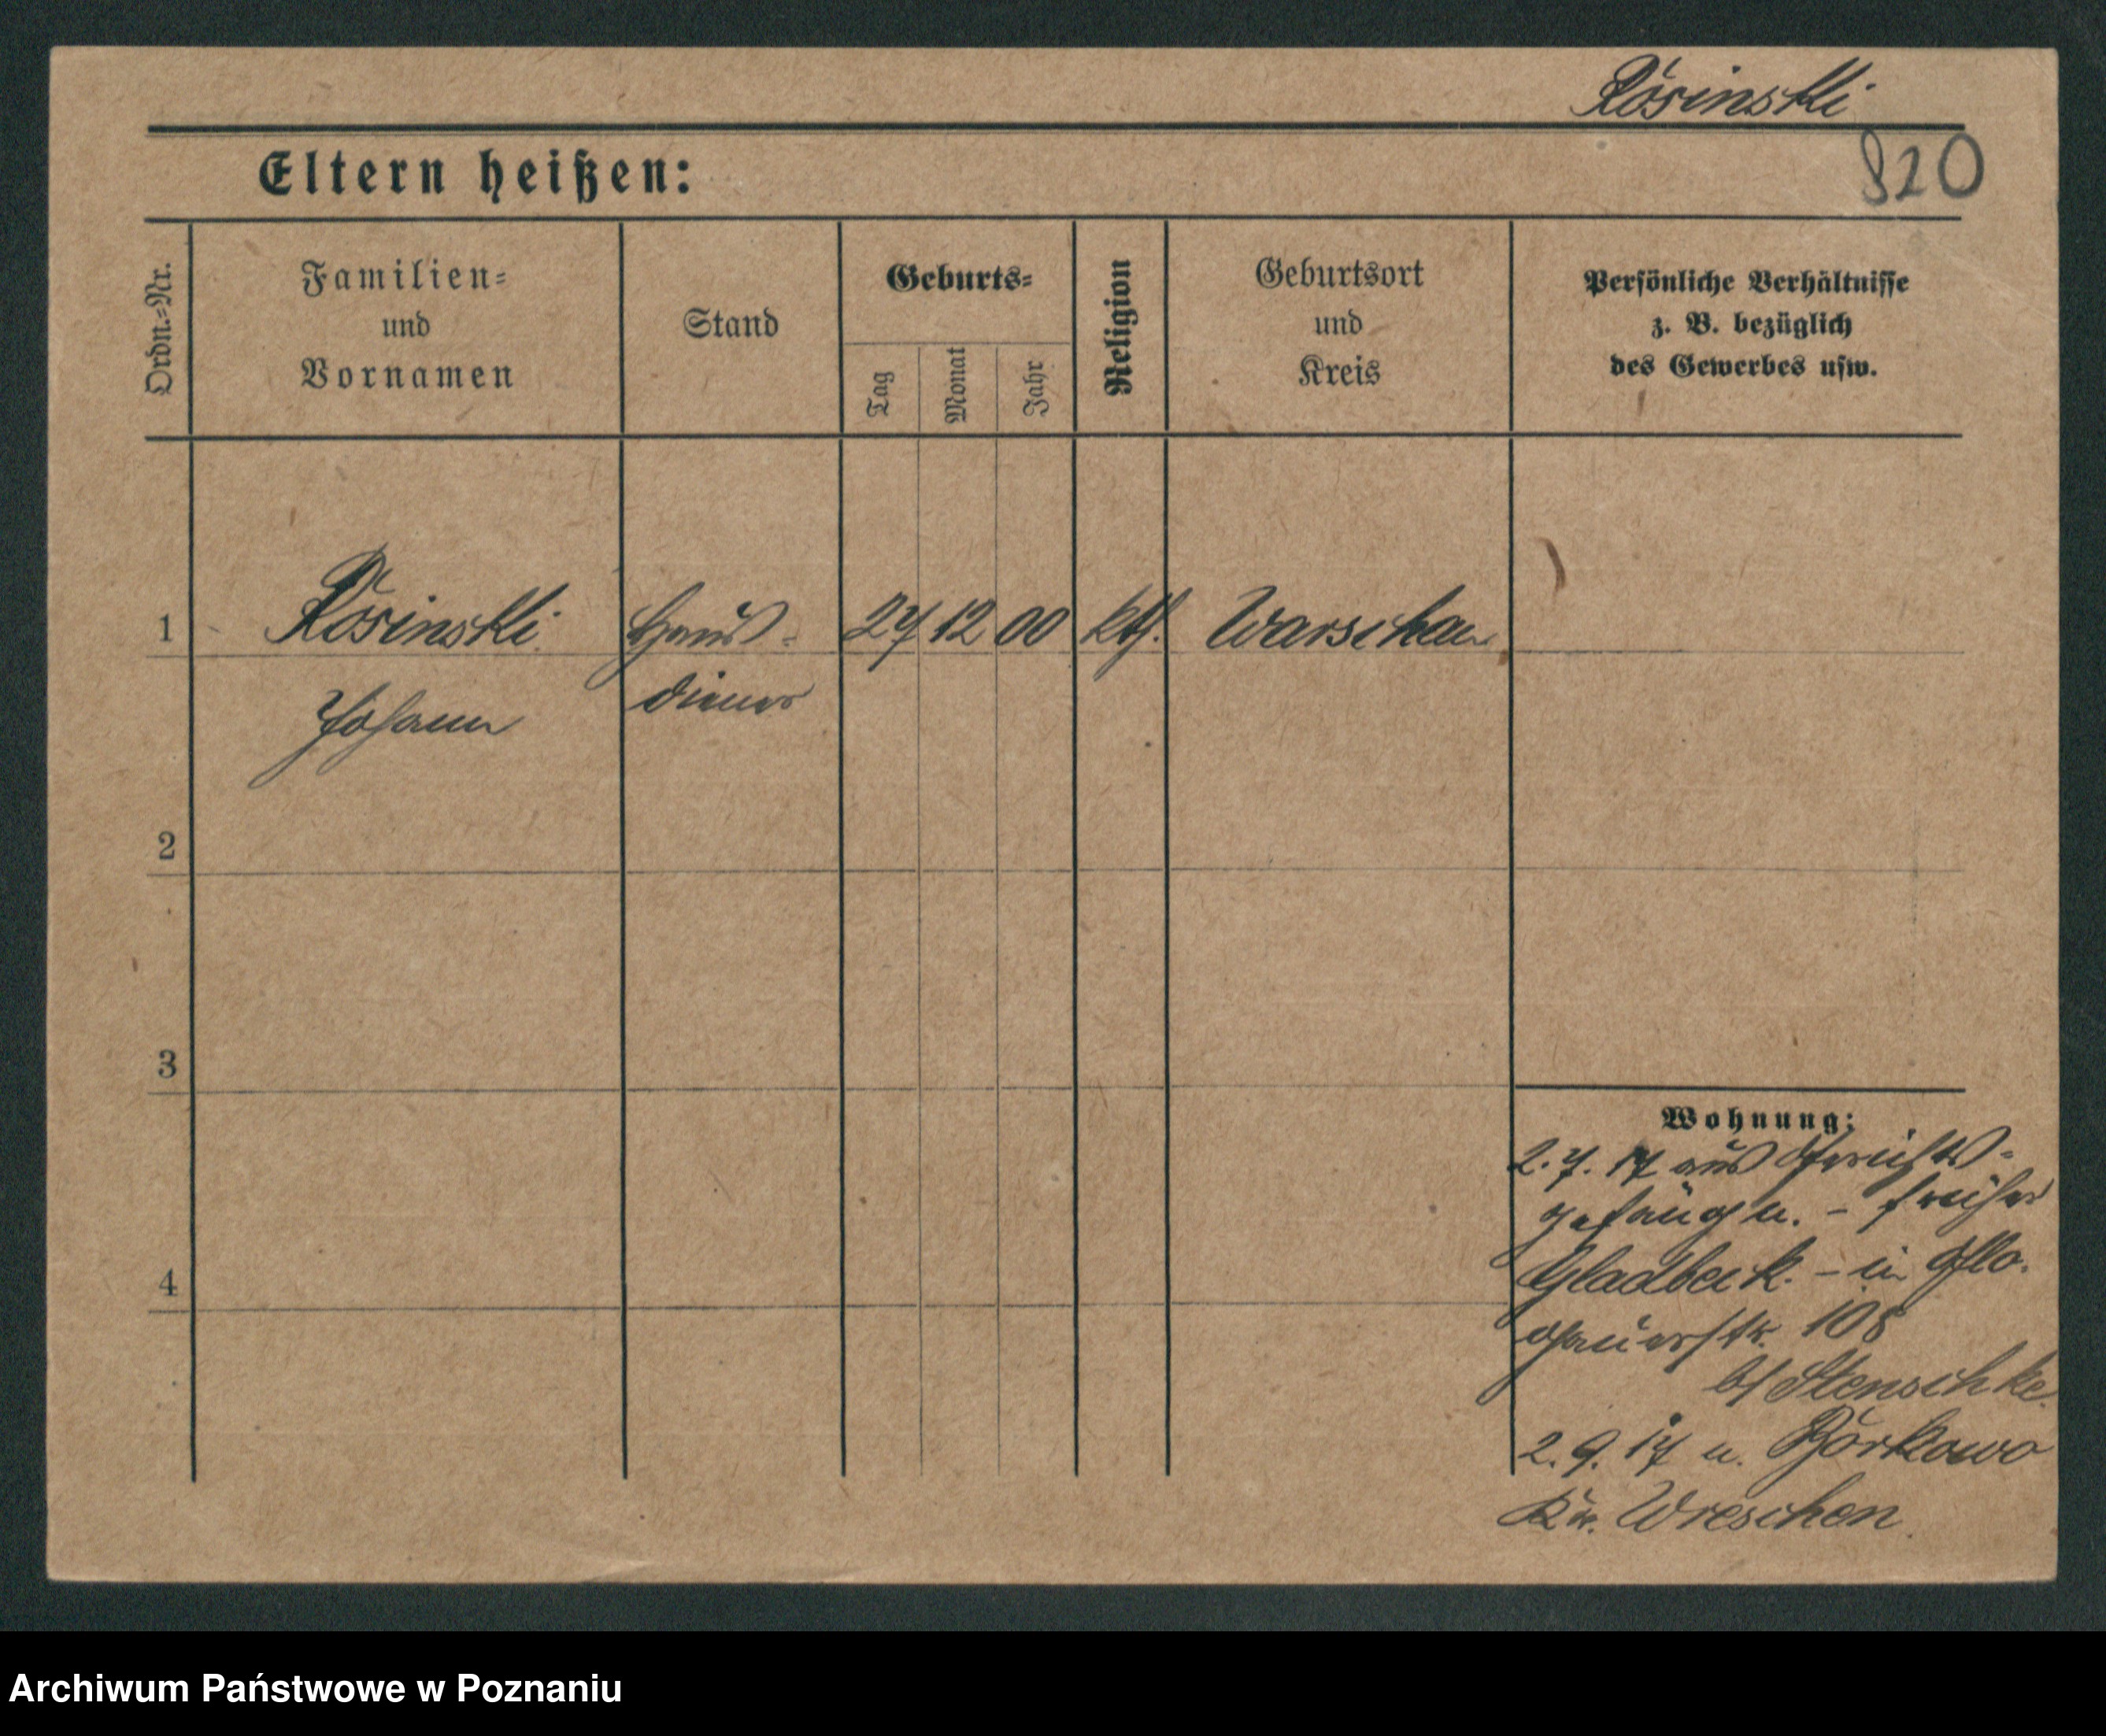 Rosinski
820
Eltern heißen:
Ordn.=Nr.
Familien=
und
Vornamen
Stand
Geburts=
Tag
Monat
Jahr
Religion
Geburtsort
und
Kreis
Persönliche Verhältnisse
z. B. bezüglich
des Gewerbes usw.
1 Rosinski Haus= 27 12 00 kth. Warschau
Johann diener
2
3
4
Wohnung:
2.7.17 aus Gerichts-
gefängn. - früher
Gladbeck. - in Glo.
gauerstr. 108
b/ Stenschke.
2.9.17 n. Borkowo
Kr. Wreschen.
Archiwum Państwowe w Poznaniu